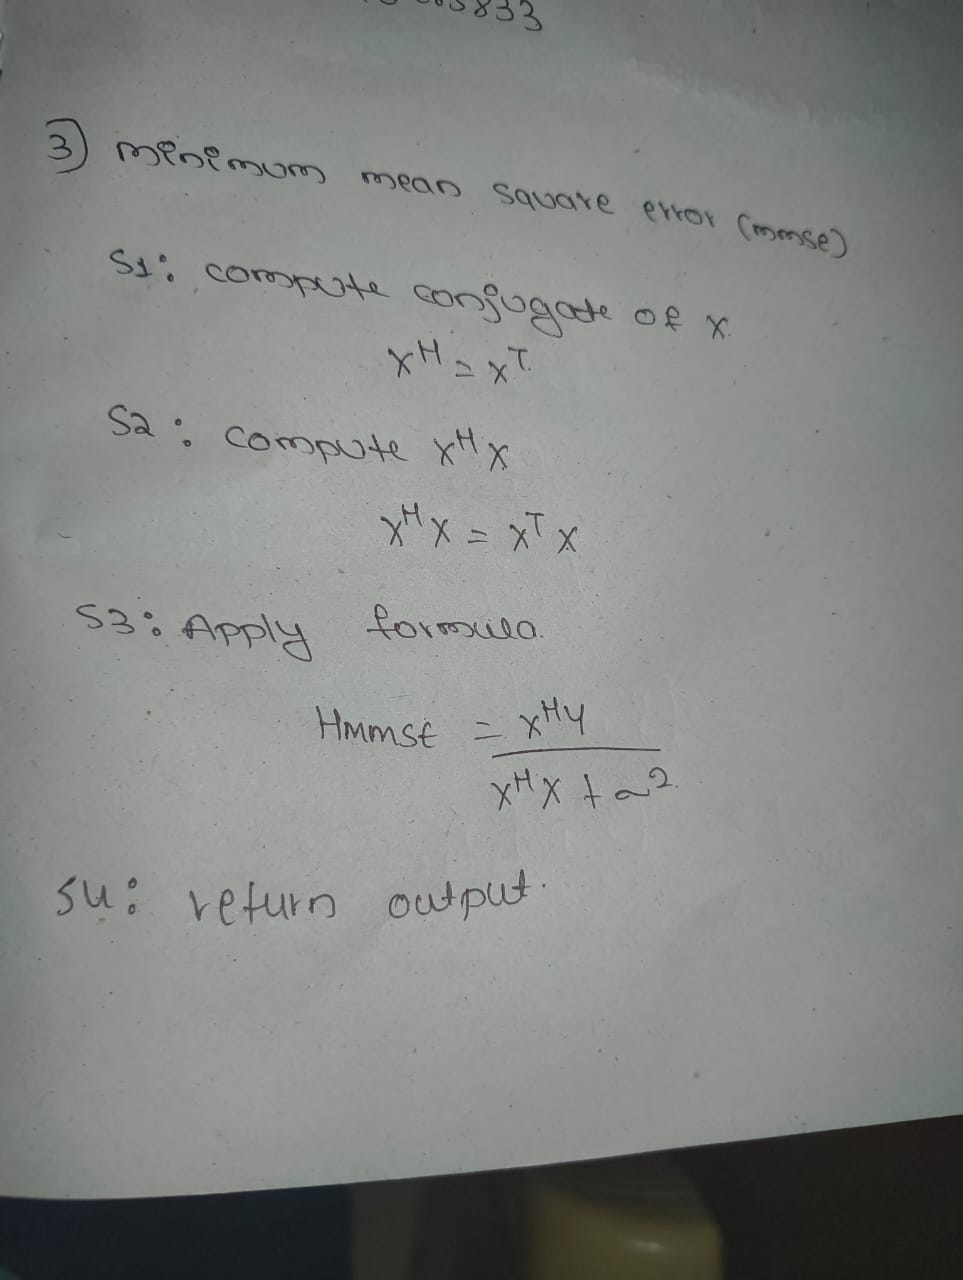 3) minimum mean square error (mmse)
S1: compute conjugate of x.
x^H = x^T.
S2: compute x^H x
x^H x = x^T x
S3: Apply formula.
Hmmse = x^H y
x^H x + a^2.
S4: return output.